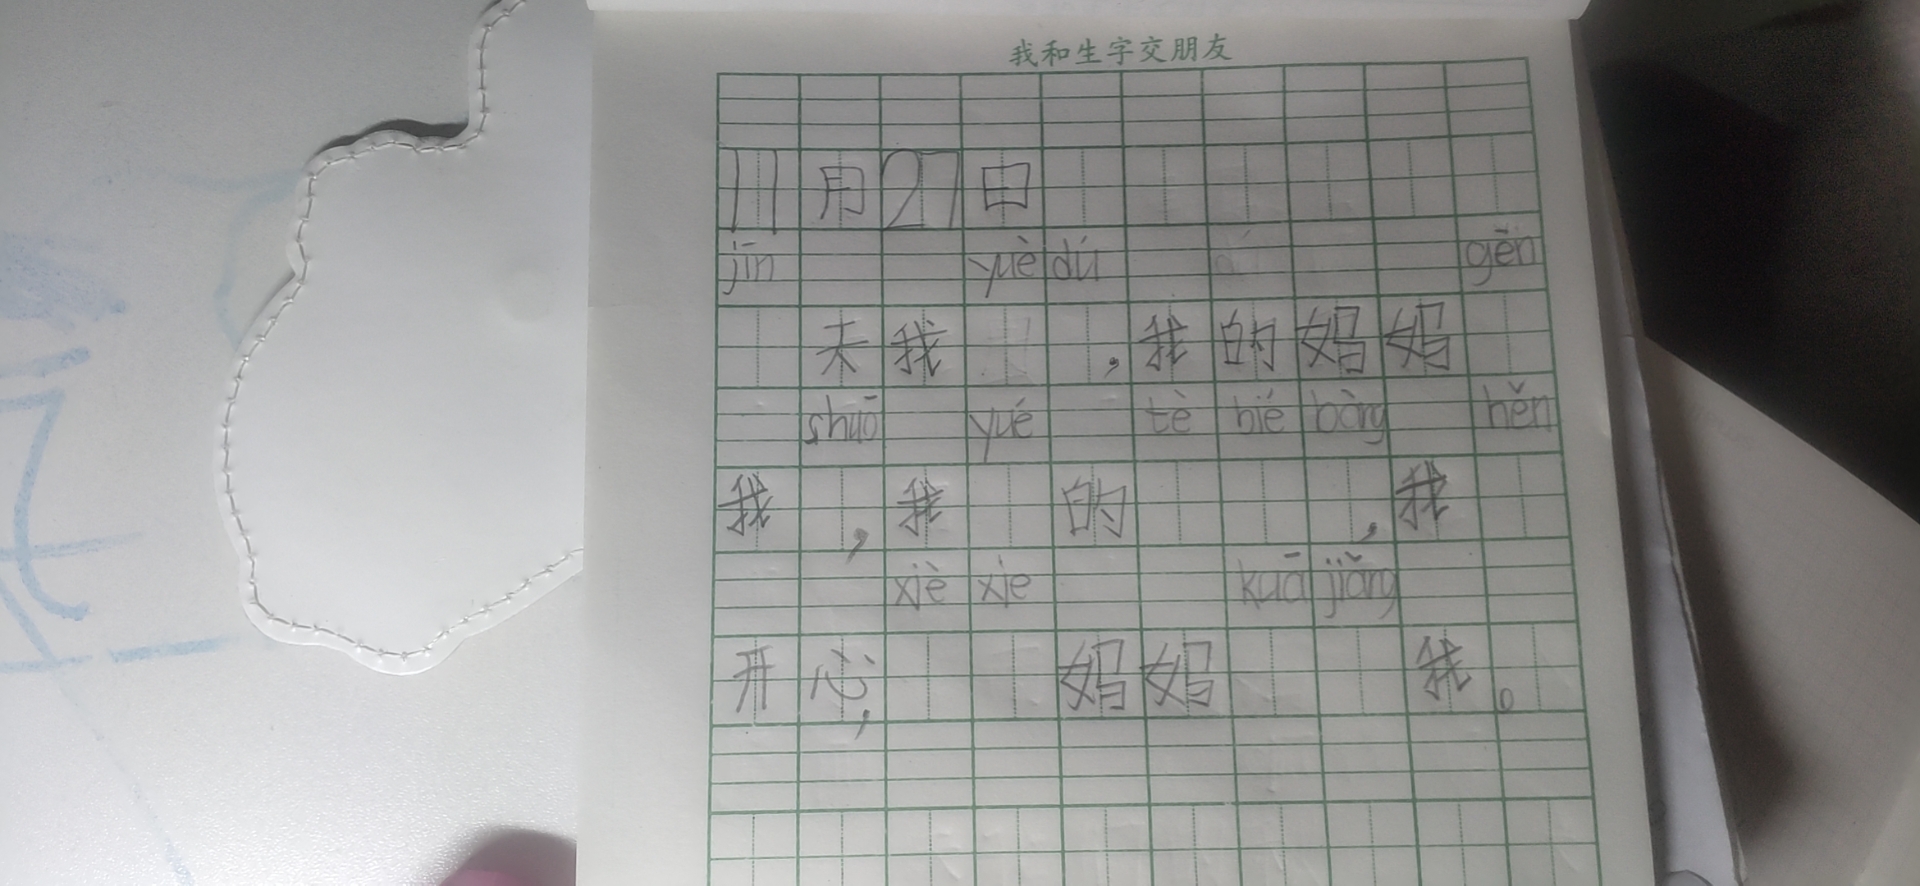 我和生字交朋友
11月27日
jīn yuè dú gēn
天我,我的妈妈
shuō yuè tè bié bàng hěn
我,我的,我
xiè xie kuā jiǎng
开心,妈妈我。